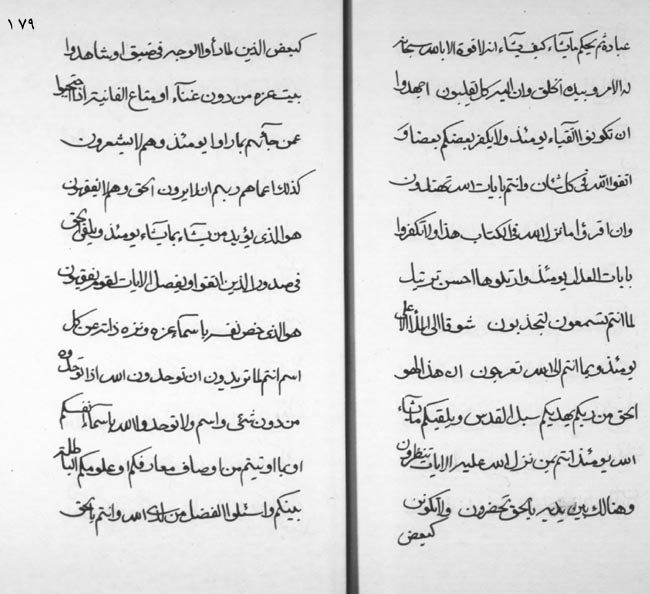 ١٧٩
عباده ثم يحكم مايشاء كيف يشاء انه لا قوة الا بالله سبحانه
له الامر وبيده الخلق وان اليه كل يقلبون اجهدوا
ان تكونن اتقياء يومئذ ولا يكفر بعضكم بعضا و
اتقوا الله في كل شئان وانتم بايات الله تهتدون
وان اقرؤا ما نزل الله في الكتاب هذا ولا تكفروا
بايات العدل يومئذ واتلوها احسن ترتيل
لما انتم تسمعون لتجذبون شوقا الى الملأ الاعلى
يومئذ وبما انتم الى الله تعرجون ان هذا لهو
الحق من ربكم يهديكم سبل القدس ويلقيكم مايشاء
الله يومئذ انتم من نزل الله عليه الايات تنظرون
وهنالك بين يديه بالحق تحضرون ولا تكونن
كبعض
كبعض الذين لما رأوا الوجه في ضيق او شاهدوا
بيت عزه من دون غناء او متاع الفانية اذا احتجبوا
عمن جائهم بما راوا يومئذ وهم لا يشعرون
كذلك اعماهم ربهم ان لا يرون الحق وهم لا يفقهون
هو الذي يؤيد من يشاء بما يشاء يومئذ ويلقي الحق
في صدور الذين اتقوا ويفصل الايات لقوم يفقهون
هو الذي خص نفسه باسماء عزه ونزه ذاته عن كل
اسم انتم لما تريدون ان توحدون الله اذا توحدوه
من دون شئي واسم ولا توحدوا الله باسماء انفسكم
او بما اوتيتم من اوصاف معارفكم او علومكم الباطلة
بينكم واسئلوا الفضل من الله وانتم بالحق